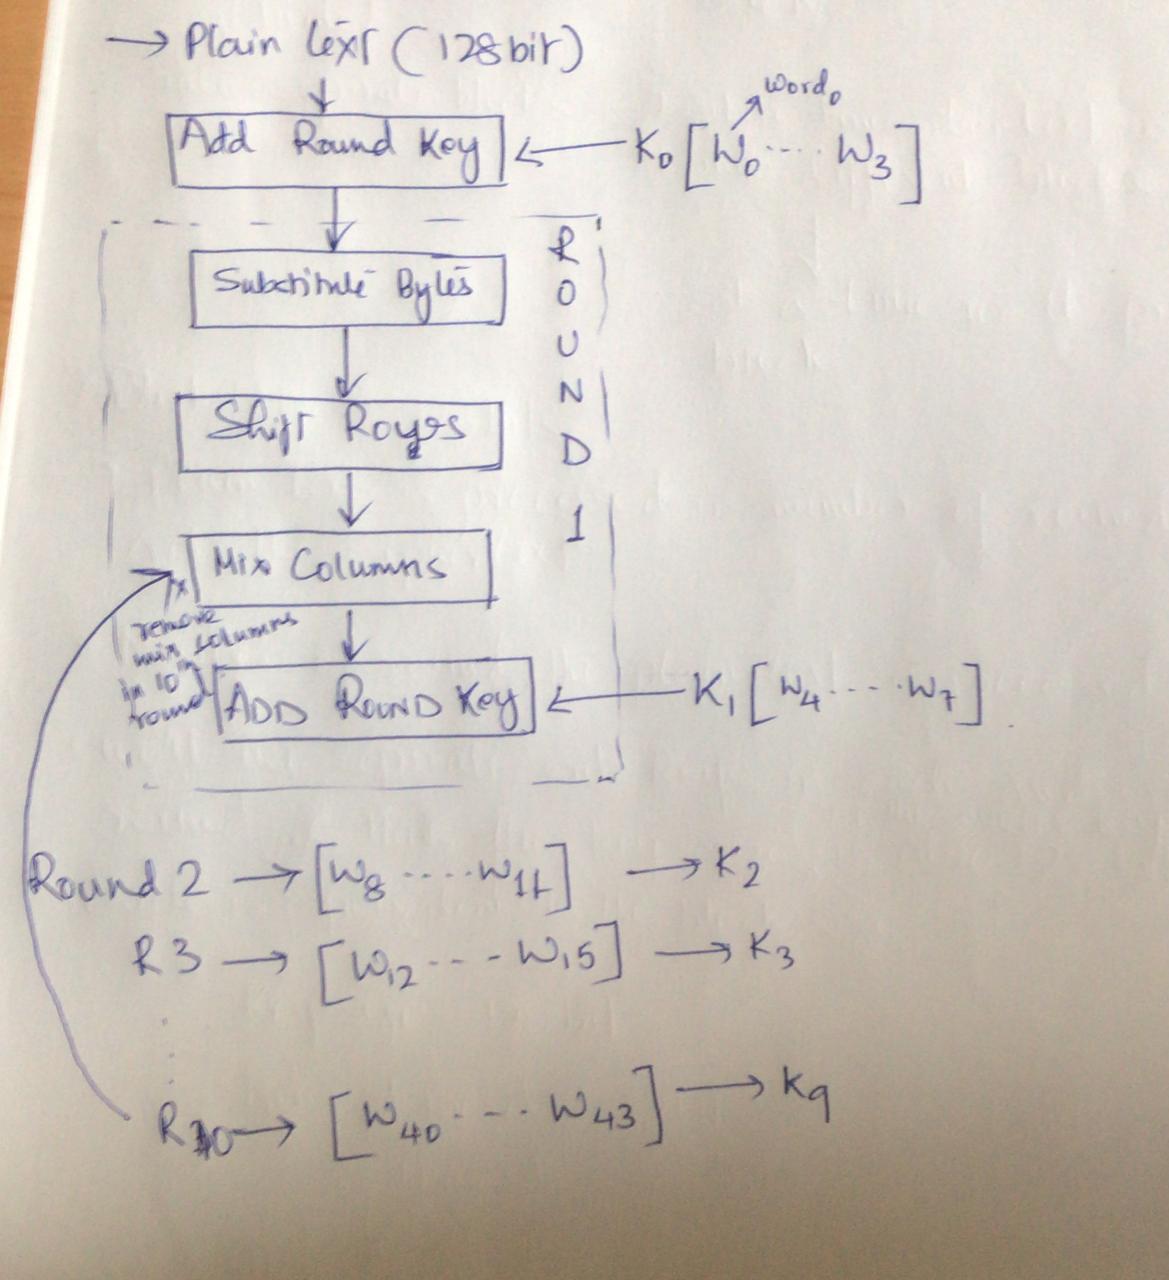 → Plain text (128 bit)
word0
Add Round Key ← K0 [W0 .... W3]
Substitute Bytes
ROUND 1
Shift Rows
Mix Columns
remove
mix columns
in 10th
round
ADD ROUND Key ← K1 [W4 .... W7]
Round 2 → [W8 .... W11] → K2
R3 → [W12 ... W15] → K3
R10 → [W40 .... W43] → K9